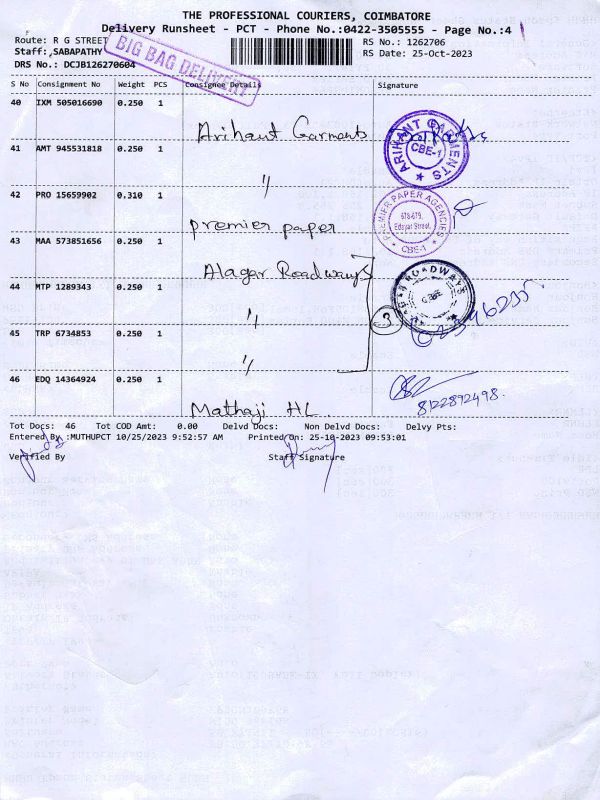 THE PROFESSIONAL COURIERS, COIMBATORE
Delivery Runsheet - PCT - Phone No.:0422-3505555 - Page No.:4
Route: R G STREET
RS No.: 1262706
Staff:,SABAPATHY
RS Date: 25-Oct-2023
DRS No.: DCJB126270604
BIG BAG DELIVERY
S No Consignment No Weight PCS Consignee Details Signature
40 IXM 505016690 0.250 1
Arihant Garments
ARIHANT GARMENTS
CBE-1
41 AMT 945531818 0.250 1
"
42 PRO 15659902 0.310 1
premier paper
PREMIER PAPER AGENCIES
Edayar Street,
CBE-1
43 MAA 573851656 0.250 1
Alagar Roadways
44 MTP 1289343 0.250 1
"
3
45 TRP 6734853 0.250 1
"
46 EDQ 14364924 0.250 1
Mathaji HL.
8122892498.
Tot Docs: 46 Tot COD Amt: 0.00 Delvd Docs: Non Delvd Docs: Delvy Pts:
Entered By :MUTHUPCT 10/25/2023 9:52:57 AM Printed On: 25-10-2023 09:53:01
Verified By Staff Signature